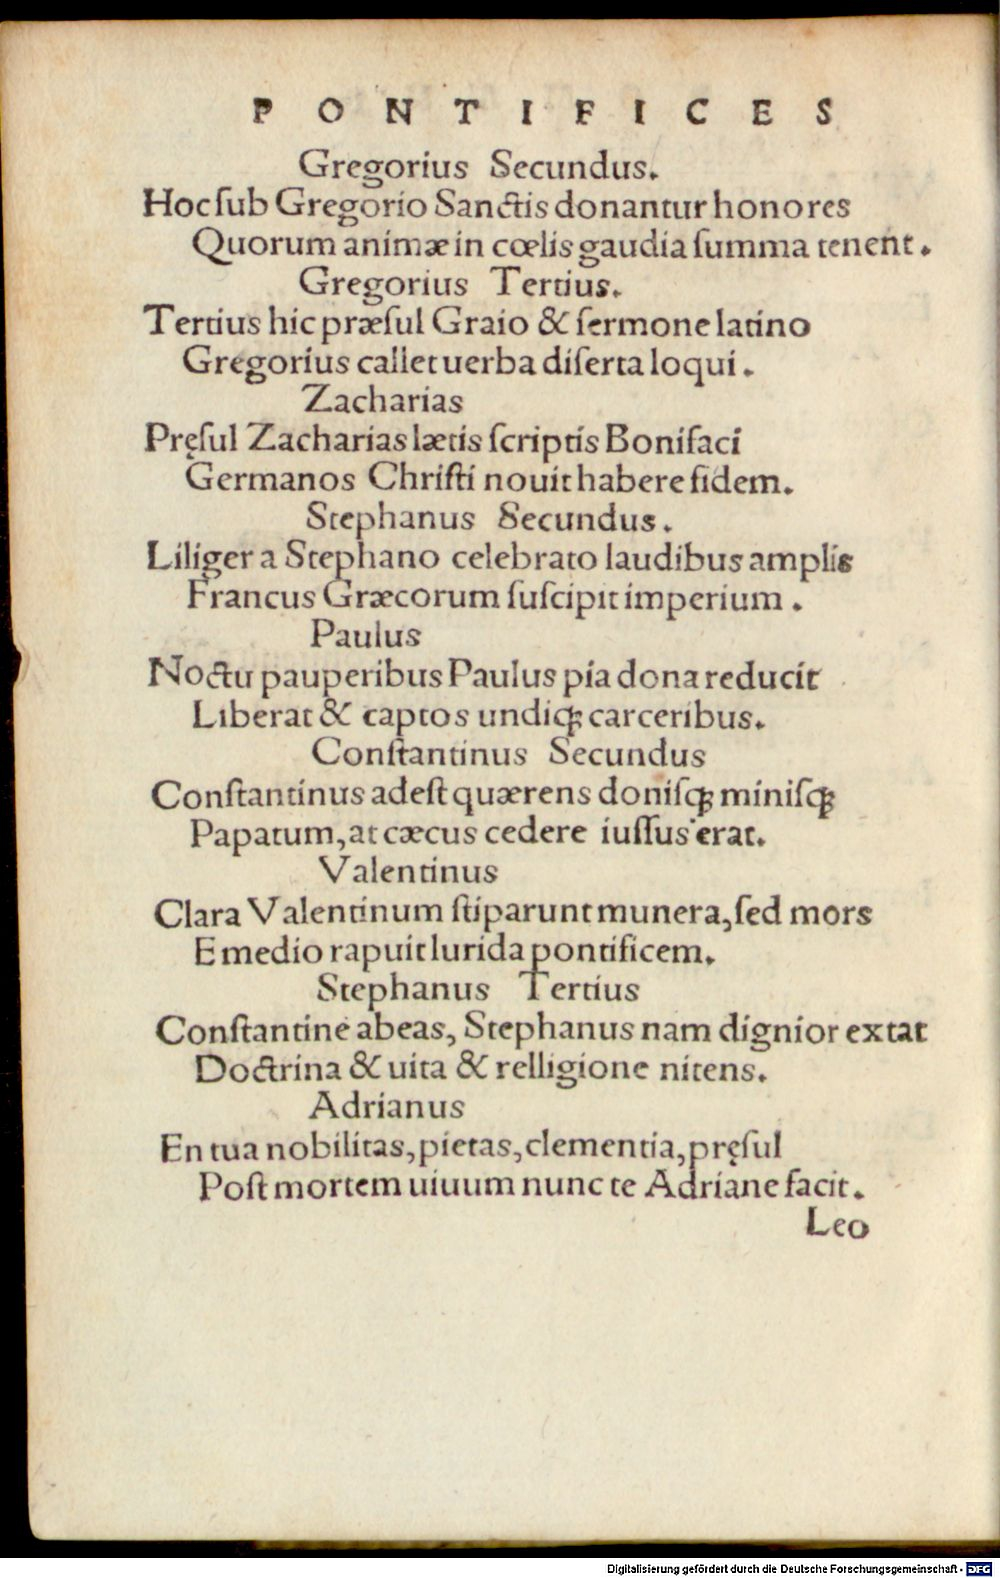 PONTIFICES
Gregorius Secundus.
Hoc ſub Gregorio Sanctis donantur honores
Quorum animæ in cœlis gaudia ſumma tenent.
Gregorius Tertius.
Tertius hic præſul Graio & ſermone latino
Gregorius callet uerba diſerta loqui.
Zacharias
Pręſul Zacharias lætis ſcriptis Bonifaci
Germanos Chriſti nouit habere fidem.
Stephanus Secundus.
Liliger a Stephano celebrato laudibus amplis
Francus Græcorum ſuſcipit imperium.
Paulus
Noctu pauperibus Paulus pia dona reducit
Liberat & captos undiqꝫ carceribus.
Conſtantinus Secundus
Conſtantinus adeſt quærens doniſqꝫ miniſqꝫ
Papatum, at cæcus cedere iuſſus erat.
Valentinus
Clara Valentinum ſtiparunt munera, ſed mors
E medio rapuit lurida pontificem.
Stephanus Tertius
Conſtantine abeas, Stephanus nam dignior extat
Doctrina & uita & relligione nitens.
Adrianus
En tua nobilitas, pietas, clementia, pręſul
Poſt mortem uiuum nunc te Adriane facit.
Leo
Digitalisierung gefördert durch die Deutsche Forschungsgemeinschaft - DFG